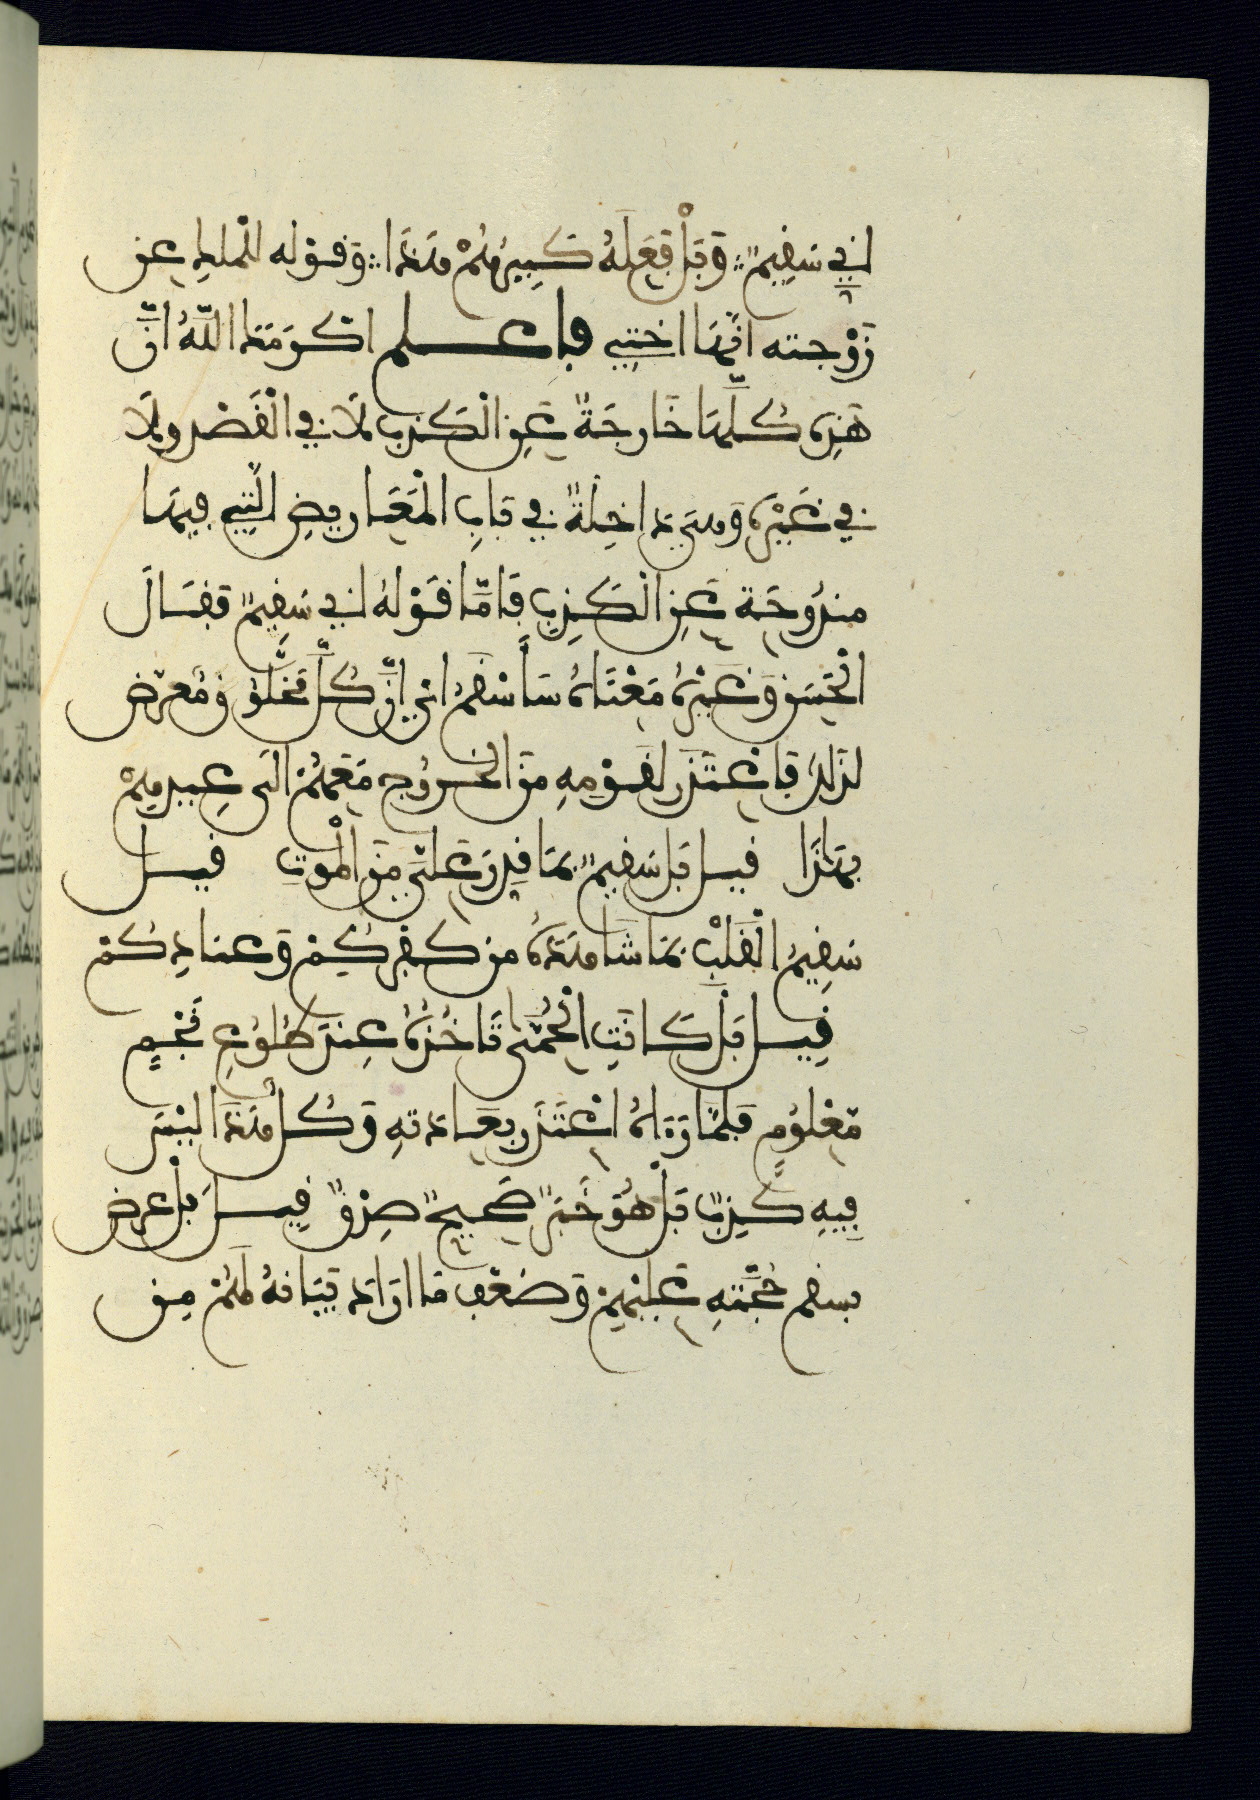 اني سَقِيمٌ ∴ وَبَلْ فَعَلَهُ كَبِيرُهُمْ هَذَا ∴ وَقَوْله للملِكِ عن
زَوْجته انَّهَا اختِي فاعلم اكرمَكَ اللَّهُ انَّ
هَذِه كُلَّهَا خَارجَةٌ عَنِ الْكَذِبِ لَا في الْقَصْدِ وَلَا
في غَيْرِهِ وَهىَ دَاخِلَةٌ في بَابِ الْمَعَارِيضِ الَّتِي فِيهَا
مندُوحَة عَنِ الْكَذِبِ فَامَّا قَوْلهُ اني سَقِيمٌ فقَالَ
الْحَسَن وَغَيْرُهُ مَعْنَاهُ سَأَسْقَمُ اي إِنَّ كُلَّ مَخْلُوق وَمُعرّض
لذَلِكَ فَاعْتَذَرَ لِقَوْمِهِ مِنَ الْخُرُوجِ مَعَهُمْ الَى عِيدِهِمْ
بِهَذَا قيل بَل سَقِيمٌ بمَا قدِّرَ عَلَيَّ مِنَ الْمَوْتِ قيل
سَقِيمُ الْقَلْبِ بمَا شَاهَدَهُ من كُفْرِكُمْ وَعنَادِكُمْ
قِيل بَلْ كَانَتِ الْحُمَّى تَاخُذُهُ عِنْدَ طُلُوعِ نَجْمٍ
مَّعْلُومٍ فَلَمَّا رَءَاهُ اعْتَذَرَ بِعَادَتهِ وَكُل هَذَا ليْسَ
فِيهِ كَذِبٌ بَلْ هُوَ خَبَرٌ صَحِيحٌ صِدْقٌ قِيلَ بَلْ عرض
بسقم حُجَّتهِ عَلَيْهِمْ وَضَعْفِ مَا ارَادَ بَيَانَهُ لَهُمْ مِن